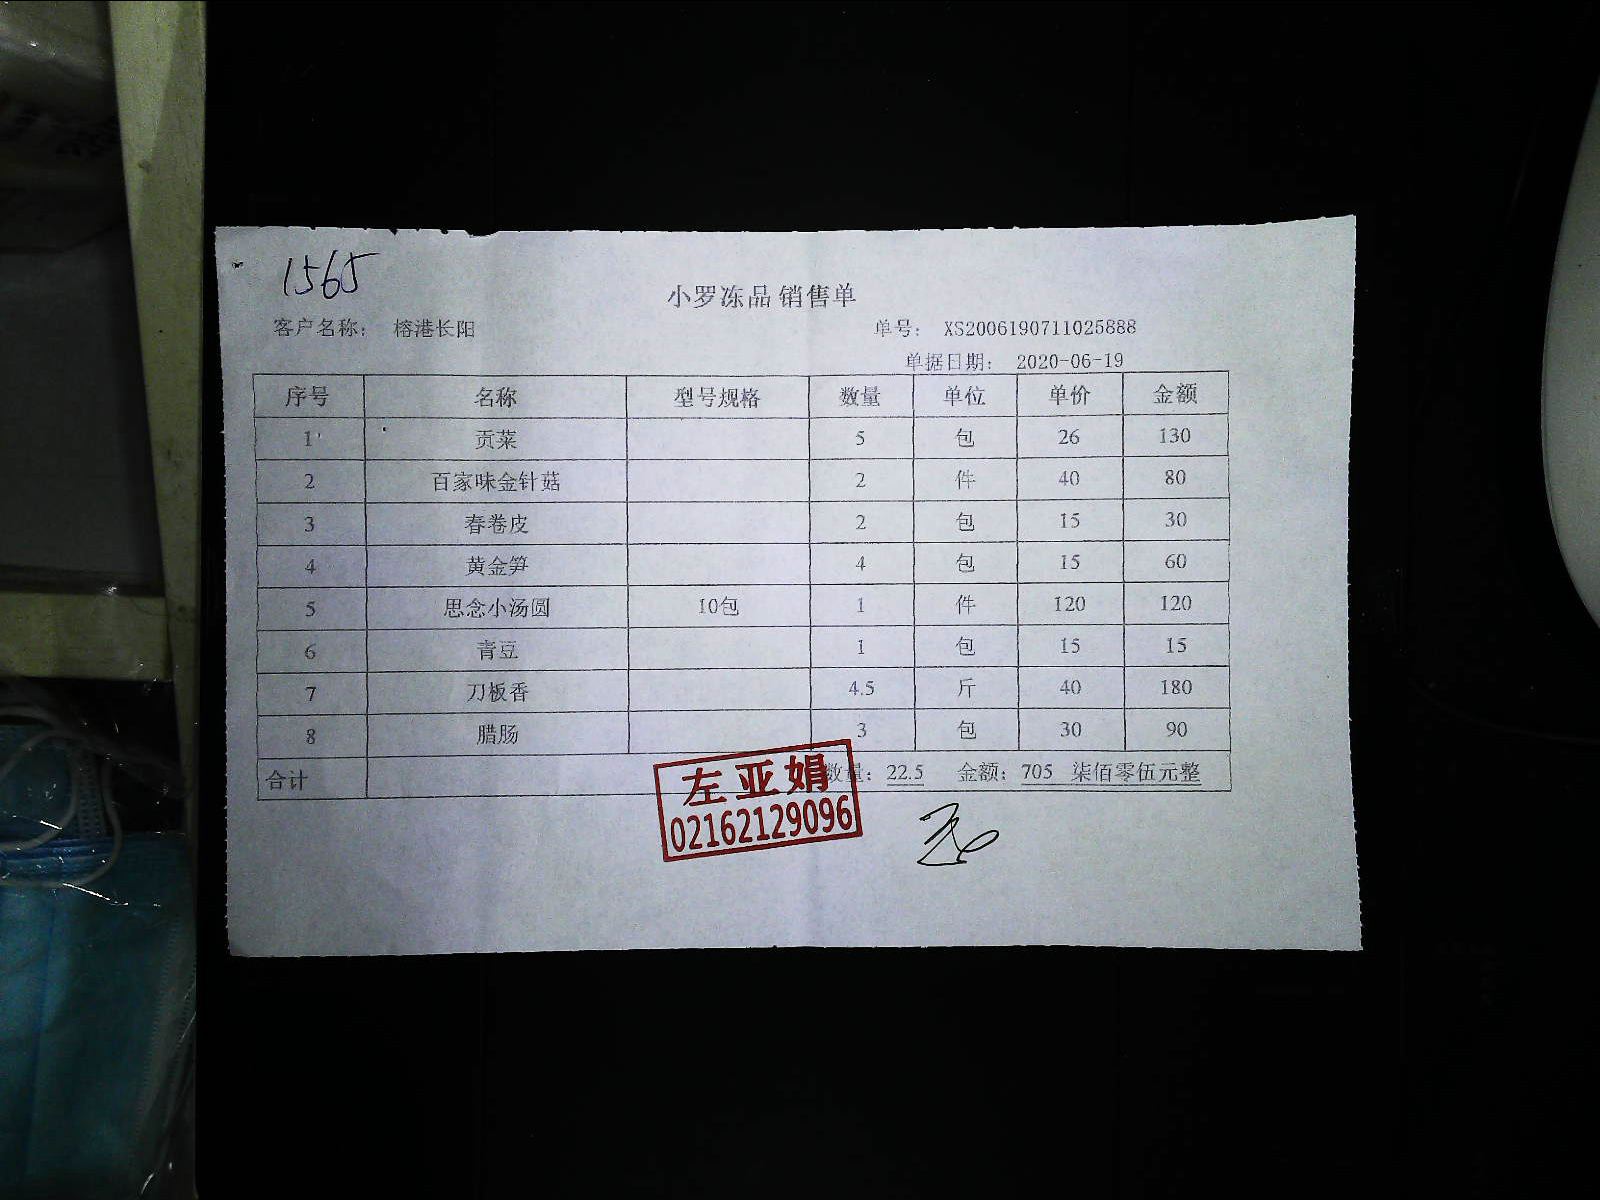 1565
小罗冻品 销售单
客户名称: 榕港长阳 单号: XS2006190711025888
单据日期: 2020-06-19
序号 名称 型号规格 数量 单位 单价 金额
1 贡菜 5 包 26 130
2 百家味金针菇 2 件 40 80
3 春卷皮 2 包 15 30
4 黄金笋 4 包 15 60
5 思念小汤圆 10包 1 件 120 120
6 青豆 1 包 15 15
7 刀板香 4.5 斤 40 180
8 腊肠 3 包 30 90
合计 数量: 22.5 金额: 705 柒佰零伍元整
左亚娟
02162129096